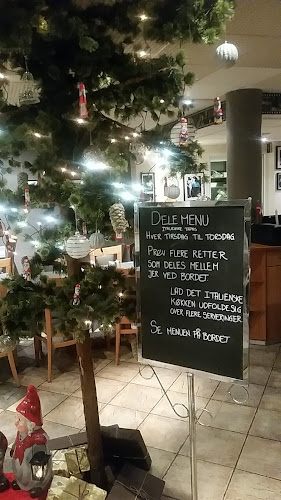 DELE MENU
ITALIENSK TAPAS
HVER TIRSDAG TIL TORSDAG
PRØV FLERE RETTER
SOM DELES MELLEM
JER VED BORDET
LAD DET ITALIENSKE
KØKKEN UDFOLDE SIG
OVER FLERE SERVERINGER
SE MENUEN PÅ BORDET